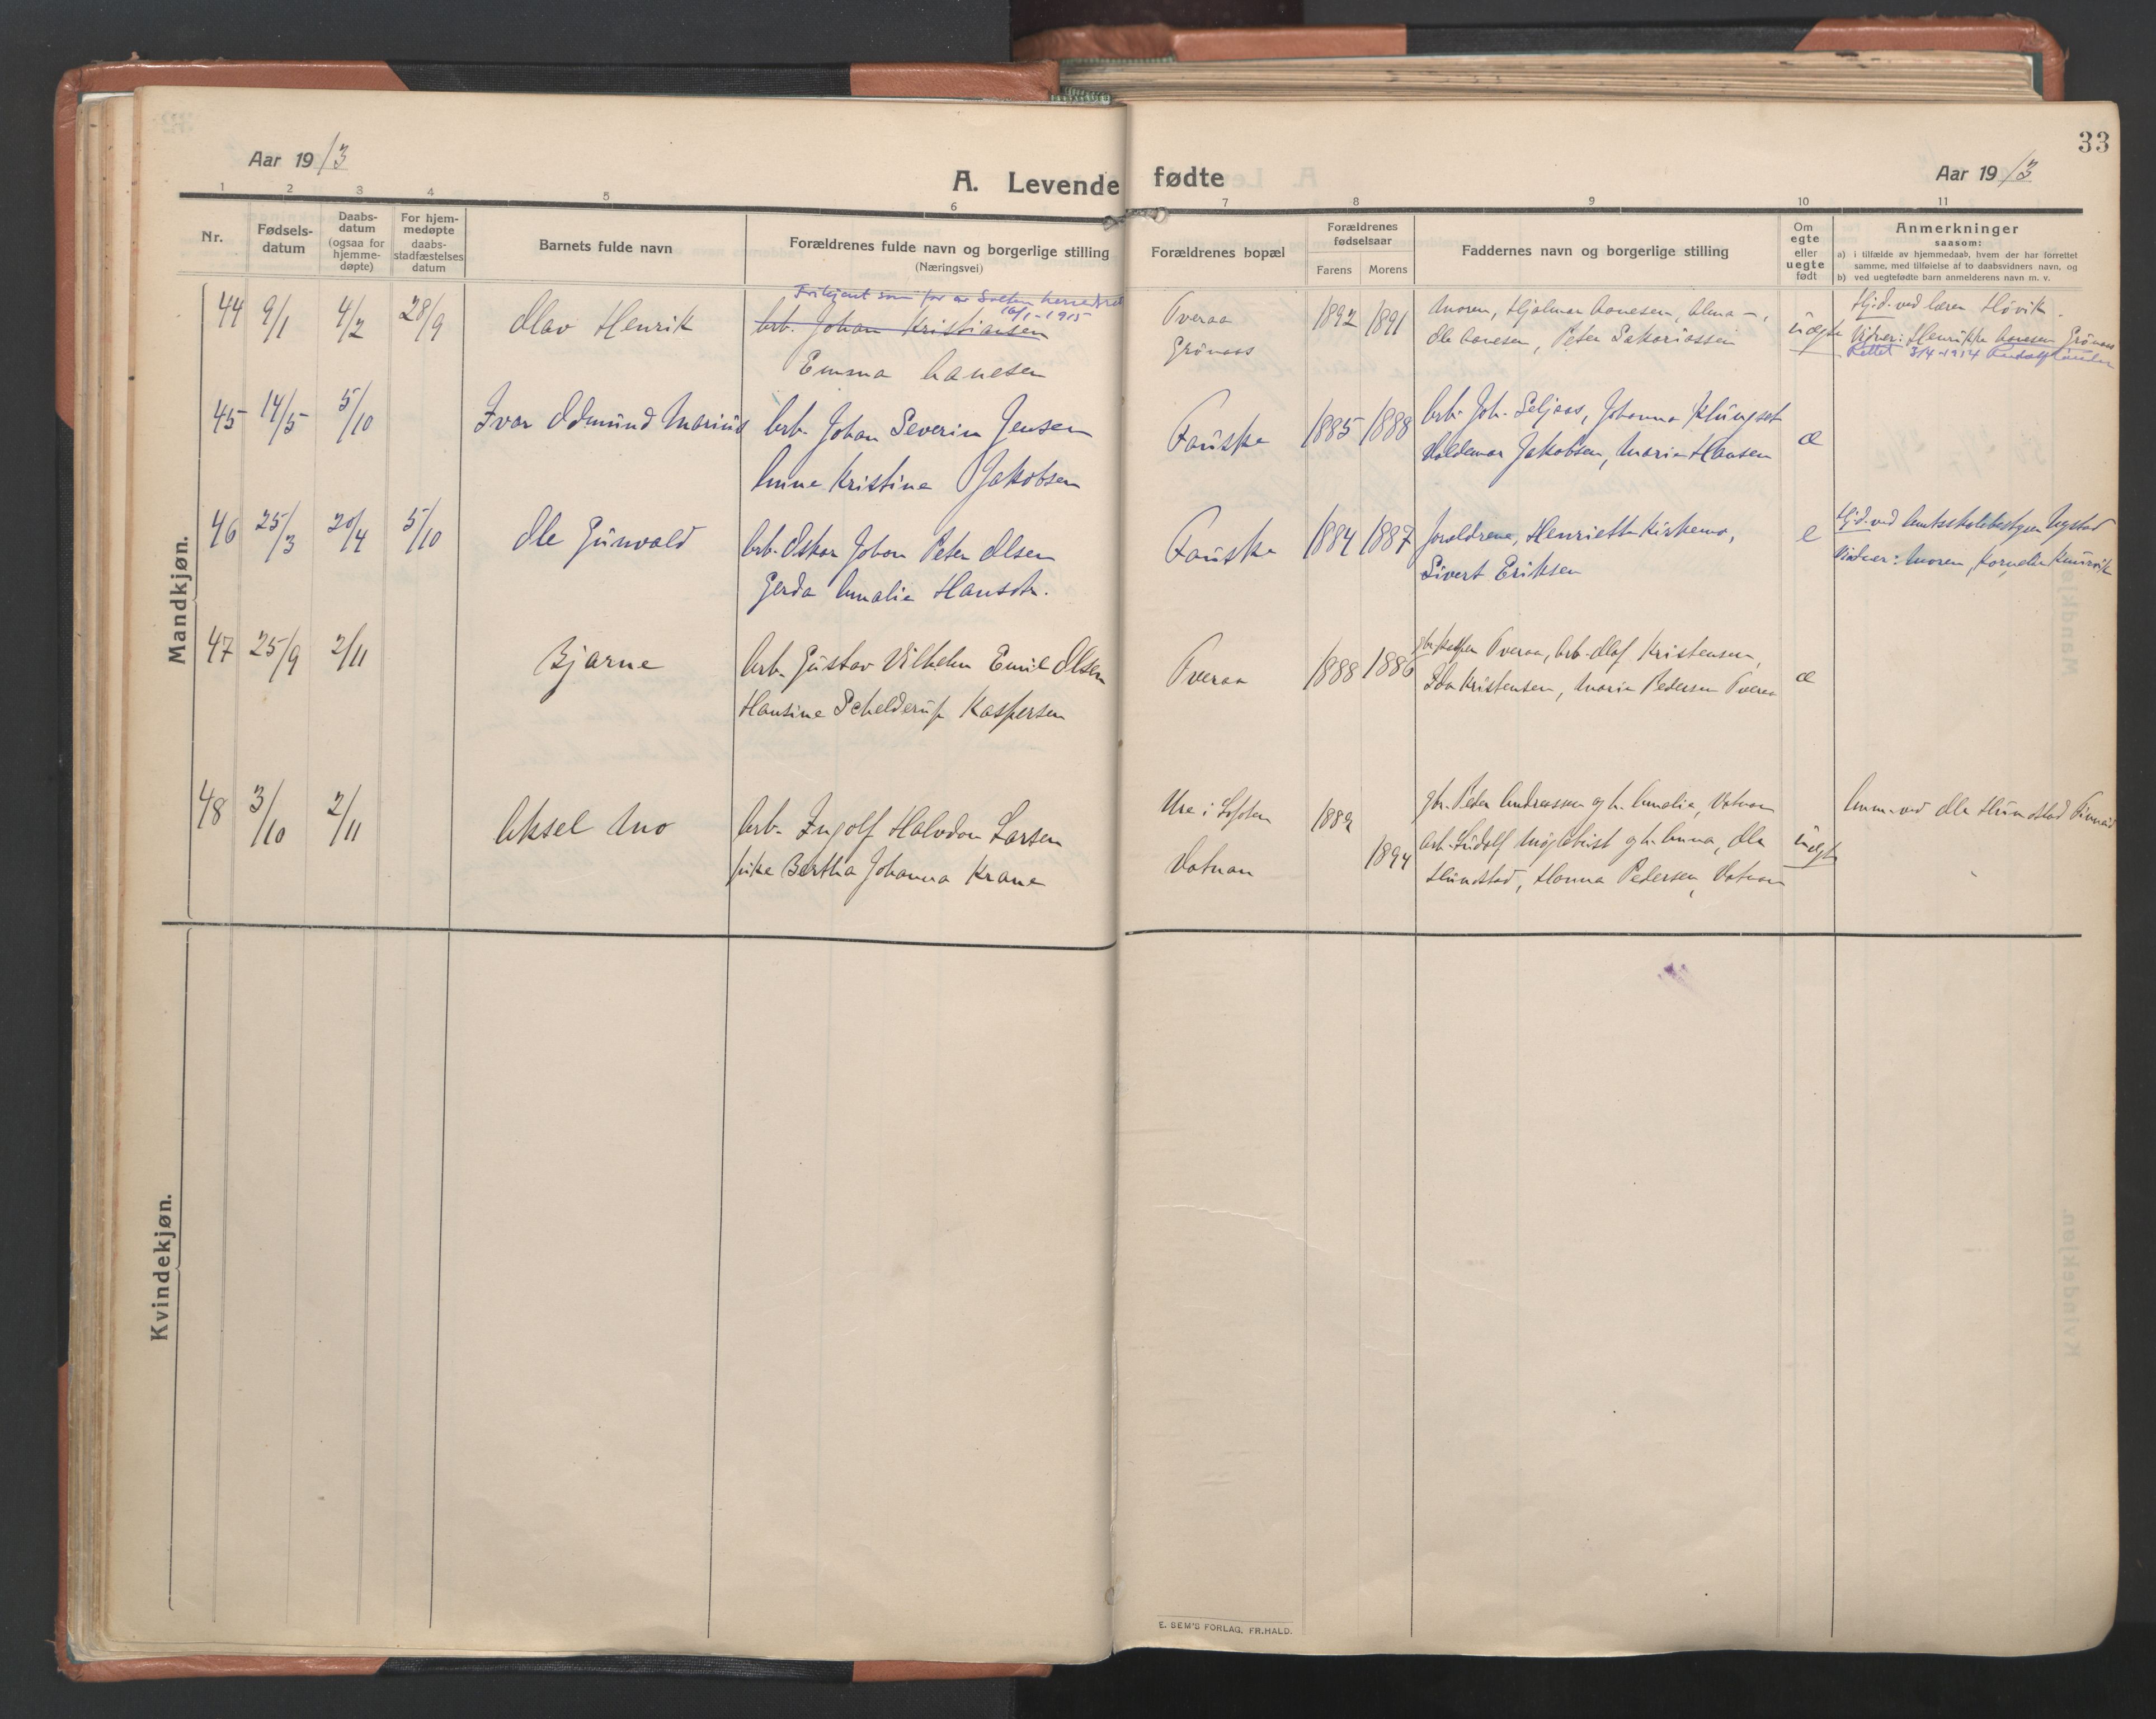 33
Aar 1913
A. Levende fødte
Aar 1913
1 2 3 4 5 6 7 8 9 10 11
Nr.
Fødsels-
datum
Daabs-
datum
(ogsaa for
hjemme-
døpte)
For hjem-
medøpte
daabs-
stadfæstelses
datum
Barnets fulde navn
Forældrenes fulde navn og borgerlige stilling
(Næringsvei)
Forældrenes bopæl
Forældrenes
fødselsaar
Farens Morens
Faddernes navn og borgerlige stilling
Om
egte
eller
uegte
født
Anmerkninger
saasom:
a) i tilfælde av hjemmedaab, hvem der har forrettet
samme, med tilføielse af to daabsvidners navn, og
b) ved uegtefødte barn anmelderens navn m. v.
Mandkjøn.
Frikjent som far av Salten herredsret
16/1-1915
44 9/1 4/2 28/9 Olav Henrik
Arb. Johan Kristiansen
Emma Hansen
Tveraa
Grønaas
1892 1891
Moren, Hjalmar Hansen, Alma —,
Ole Hansen, Peter Sakariassen
uegte
Hj.d. ved lærer Høvik.
Vidner: Henrikke Hansen Grønaas
Rettet 3/4-1914
45 14/5 5/10
Ivar Edmund Marius
Arb. Johan Severin Jensen
Anne Kristine Jakobsen
Fauske
1885 1888
Arb. Joh. Seljaas, Johanna Klungset
Valdemar Jakobsen, Marie Hansen
e
46 25/3 20/4 5/10
Ole Gunvald
Arb. Oskar Johan Peter Olsen
Gerda Amalie Hansdtr.
Fauske
1884 1887
Forældrene, Henriette Kirkemo,
Sivert Eriksen
e
Hj.d. ved Amtsskolebestyrer Mystad
Vidner: Moren, Kornelie
47 25/9 2/11
Bjarne
Arb. Gustav Vilhelm Emil Olsen
Hansine Schelderup Kaspersen
Tveraa
1888 1886
Tveraa, Arb. Olaf Kristensen,
Ida Kristensen, Marie Pedersen Tveraa
e
48 3/10 2/11
Aksel Mo
Arb. Ingolf Halvdan Larsen
pike Bertha Johanna Krane
Ure i Lofoten
Vatnan
1882
1894
gbr. Peder Andreassen og h. Amalie, Vatnan
arb. Ludolf og h. Anna, Ole
Hundstad, Hanna Pedersen, Vatnan
uegte
Anm. ved Ole Hundstad Finneid
Kvindekjøn.
E. SEM'S FORLAG, FR.HALD.